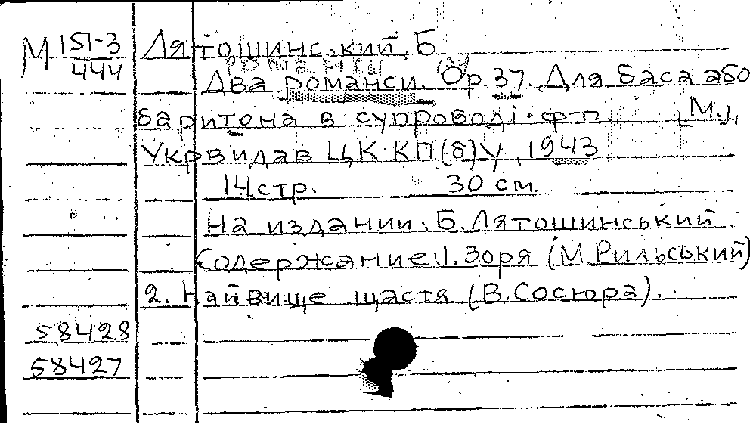 М 151-3
444
Лятошинский, Б
Два романси. Ор. 37. Для баса або
баритона в супроводі ф-п М.,
Укрвидав ЦК КП(б)У, 1943
14 стр. 30 см.
На издании: Б. Лятошинський.
Содержание: 1. Зоря (М. Рильський)
2. Найвище щастя (В. Сосюра).
58428
58427